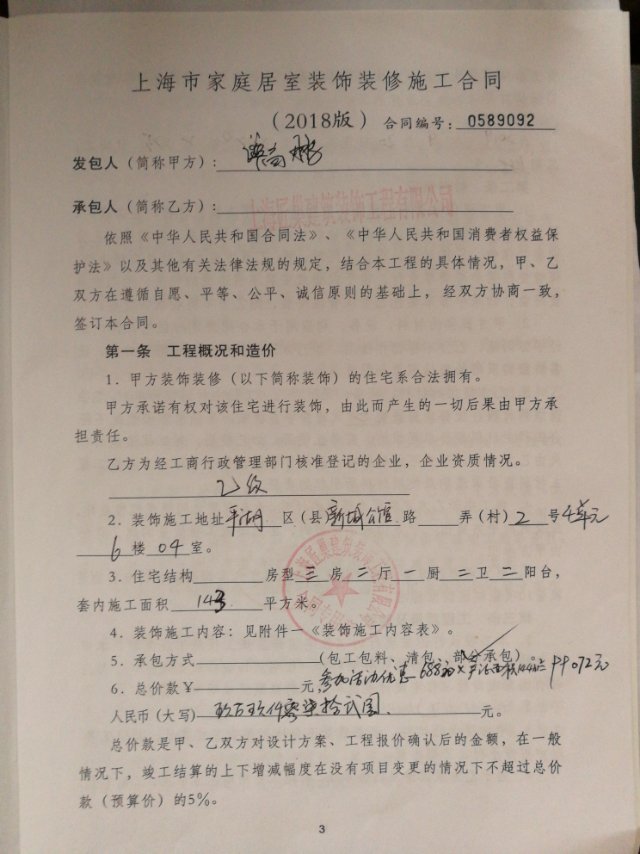 上海市家庭居室装饰装修施工合同
（2018版）合同编号：0589092
发包人（简称甲方）：
承包人（简称乙方）：建筑装饰工程有限公司
依照《中华人民共和国合同法》、《中华人民共和国消费者权益保
护法》以及其他有关法律法规的规定，结合本工程的具体情况，甲、乙
双方在遵循自愿、平等、公平、诚信原则的基础上，经双方协商一致，
签订本合同。
第一条 工程概况和造价
1．甲方装饰装修（以下简称装饰）的住宅系合法拥有。
甲方承诺有权对该住宅进行装饰，由此而产生的一切后果由甲方承
担责任。
乙方为经工商行政管理部门核准登记的企业，企业资质情况。
乙级
2．装饰施工地址平湖区（县新城公馆路 弄（村）2号4单元
6楼04室。
3．住宅结构 房型三房二厅一厨二卫二阳台，
套内施工面积 平方米。
4．装饰施工内容：见附件一《装饰施工内容表》。
5．承包方式 （包工包料、清包、部分承包）。
6．总价款¥ 元，参加活动优惠688元× 99072元
人民币（大写）玖万玖仟零柒拾贰圆 元。
总价款是甲、乙双方对设计方案、工程报价确认后的金额，在一般
情况下，竣工结算的上下增减幅度在没有项目变更的情况下不超过总价
款（预算价）的5%。
3